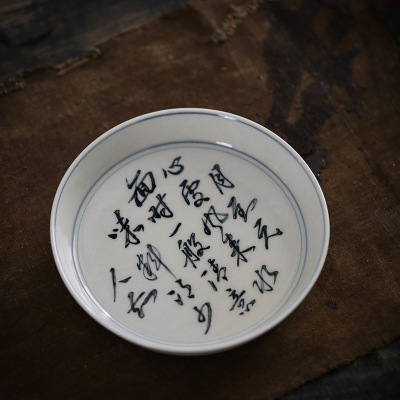 月到天
心處风来水
面时一般清意
味料得少
人知